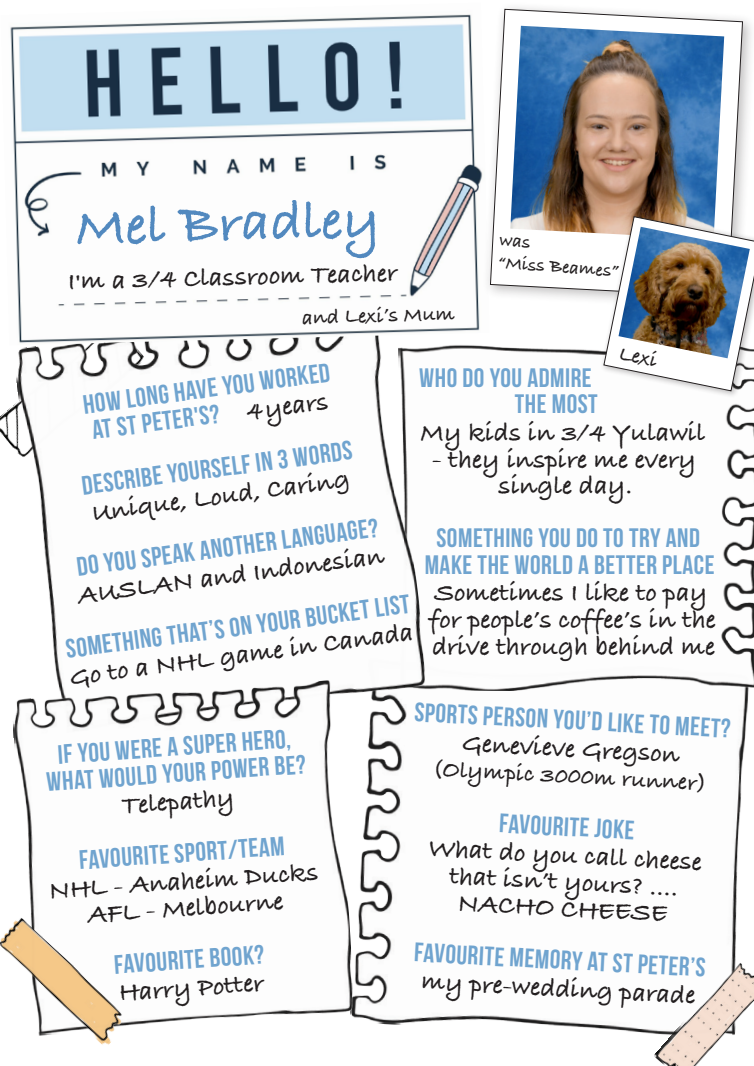 HELLO!
MY NAME IS
Mel Bradley
I'm a 3/4 Classroom Teacher
and Lexi's Mum
was
"Miss Beames"
Lexi
HOW LONG HAVE YOU WORKED
AT ST PETER'S? 4 years
DESCRIBE YOURSELF IN 3 WORDS
Unique, Loud, Caring
DO YOU SPEAK ANOTHER LANGUAGE?
AUSLAN and Indonesian
SOMETHING THAT'S ON YOUR BUCKET LIST
Go to a NHL game in Canada
WHO DO YOU ADMIRE
THE MOST
My kids in 3/4 Yulawil
- they inspire me every
single day.
SOMETHING YOU DO TO TRY AND
MAKE THE WORLD A BETTER PLACE
Sometimes I like to pay
for people's coffee's in the
drive through behind me
IF YOU WERE A SUPER HERO,
WHAT WOULD YOUR POWER BE?
Telepathy
FAVOURITE SPORT/TEAM
NHL - Anaheim Ducks
AFL - Melbourne
FAVOURITE BOOK?
Harry Potter
SPORTS PERSON YOU'D LIKE TO MEET?
Genevieve Gregson
(Olympic 3000m runner)
FAVOURITE JOKE
What do you call cheese
that isn't yours? ....
NACHO CHEESE
FAVOURITE MEMORY AT ST PETER'S
my pre-wedding parade